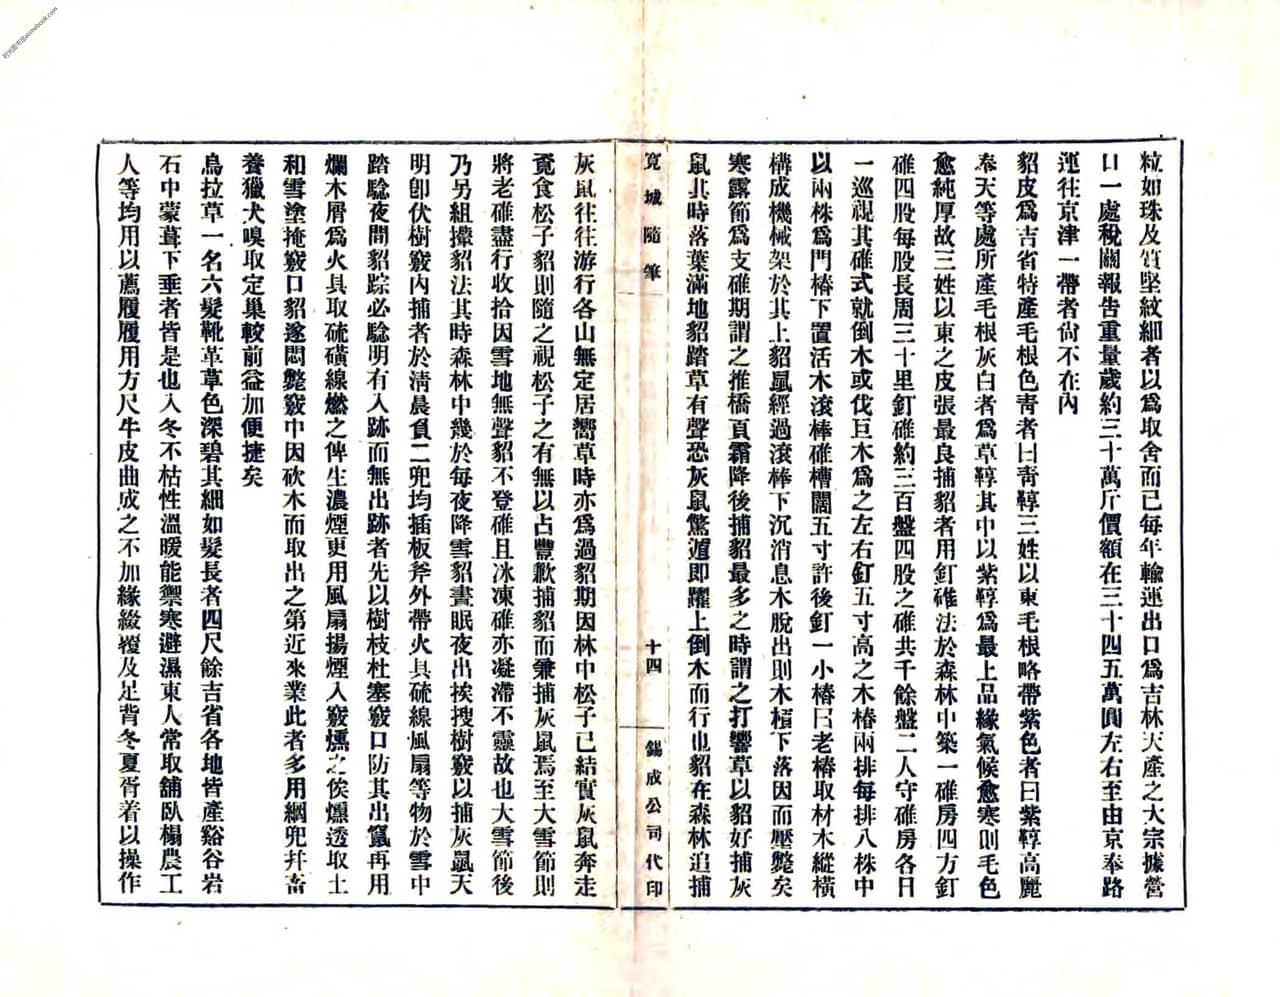 粒如珠及質堅紋細者以爲取舍而已每年輸運出口爲吉林天產之大宗據營
口一處稅關報吿重量歲約三十萬斤價額在三十四五萬圓左右至由京奉路
運往京津一帶者尙不在內
貂皮爲吉省特產毛根色靑者曰靑鞟三姓以東毛根略帶紫色者曰紫鞟高麗
奉天等處所產毛根灰白者爲草鞟其中以紫鞟爲最上品緣氣候愈寒則毛色
愈純厚故三姓以東之皮張最良捕貂者用釘碓法於森林中築一碓房四方釘
碓四股每股長周三十里釘碓約三百盤四股之碓共千餘盤二人守碓房各日
一巡視其碓式就倒木或伐巨木爲之左右釘五寸高之木樁兩排每排八株中
以兩株爲門樁下置活木滾棒碓槽闊五寸許後釘一小樁曰老樁取材木縱橫
構成機械架於其上貂鼠經過滾棒下沉消息木脫出則木槓下落因而壓斃矣
寒露節爲支碓期謂之推橋頁霜降後捕貂最多之時謂之打響草以貂好捕灰
鼠其時落葉滿地貂踏草有聲恐灰鼠驚遁即躍上倒木而行也貂在森林追捕
寬城隨筆
十四
錫成公司代印
灰鼠往往游行各山無定居嚮草時亦爲過貂期因林中松子已結實灰鼠奔走
覓食松子貂則隨之視松子之有無以占豐歉捕貂而兼捕灰鼠焉至大雪節則
將老碓盡行收拾因雪地無聲貂不登碓且冰凍碓亦凝滯不靈故也大雪節後
乃另組攆貂法其時森林中幾於每夜降雪貂晝眠夜出挨搜樹竅以捕灰鼠天
明卽伏樹竅內捕者於淸晨負二兜均插板斧外帶火具硫線風扇等物於雪中
踏騐夜間貂踪必騐明有入跡而無出跡者先以樹枝杜塞竅口防其出竄再用
爛木屑爲火具取硫磺線燃之俾生濃煙更用風扇揚煙入竅燻之俟燻透取土
和雪塗掩竅口貂遂悶斃竅中因砍木而取出之第近來業此者多用網兜幷畜
養獵犬嗅取定巢較前益加便捷矣
烏拉草一名六髮靴草草色深碧其細如髮長者四尺餘吉省各地皆產谿谷岩
石中蒙葺下垂者皆是也入冬不枯性溫暖能禦寒避濕東人常取舖臥榻農工
人等均用以薦履履用方尺牛皮曲成之不加緣綴覆及足背冬夏胥着以操作